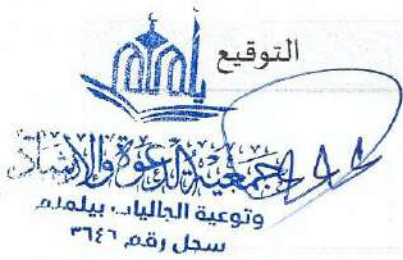 التوقيع
جمعية الدعوة والإرشاد
وتوعية الجاليات بيلملم
سجل رقم ٣٦٤٦